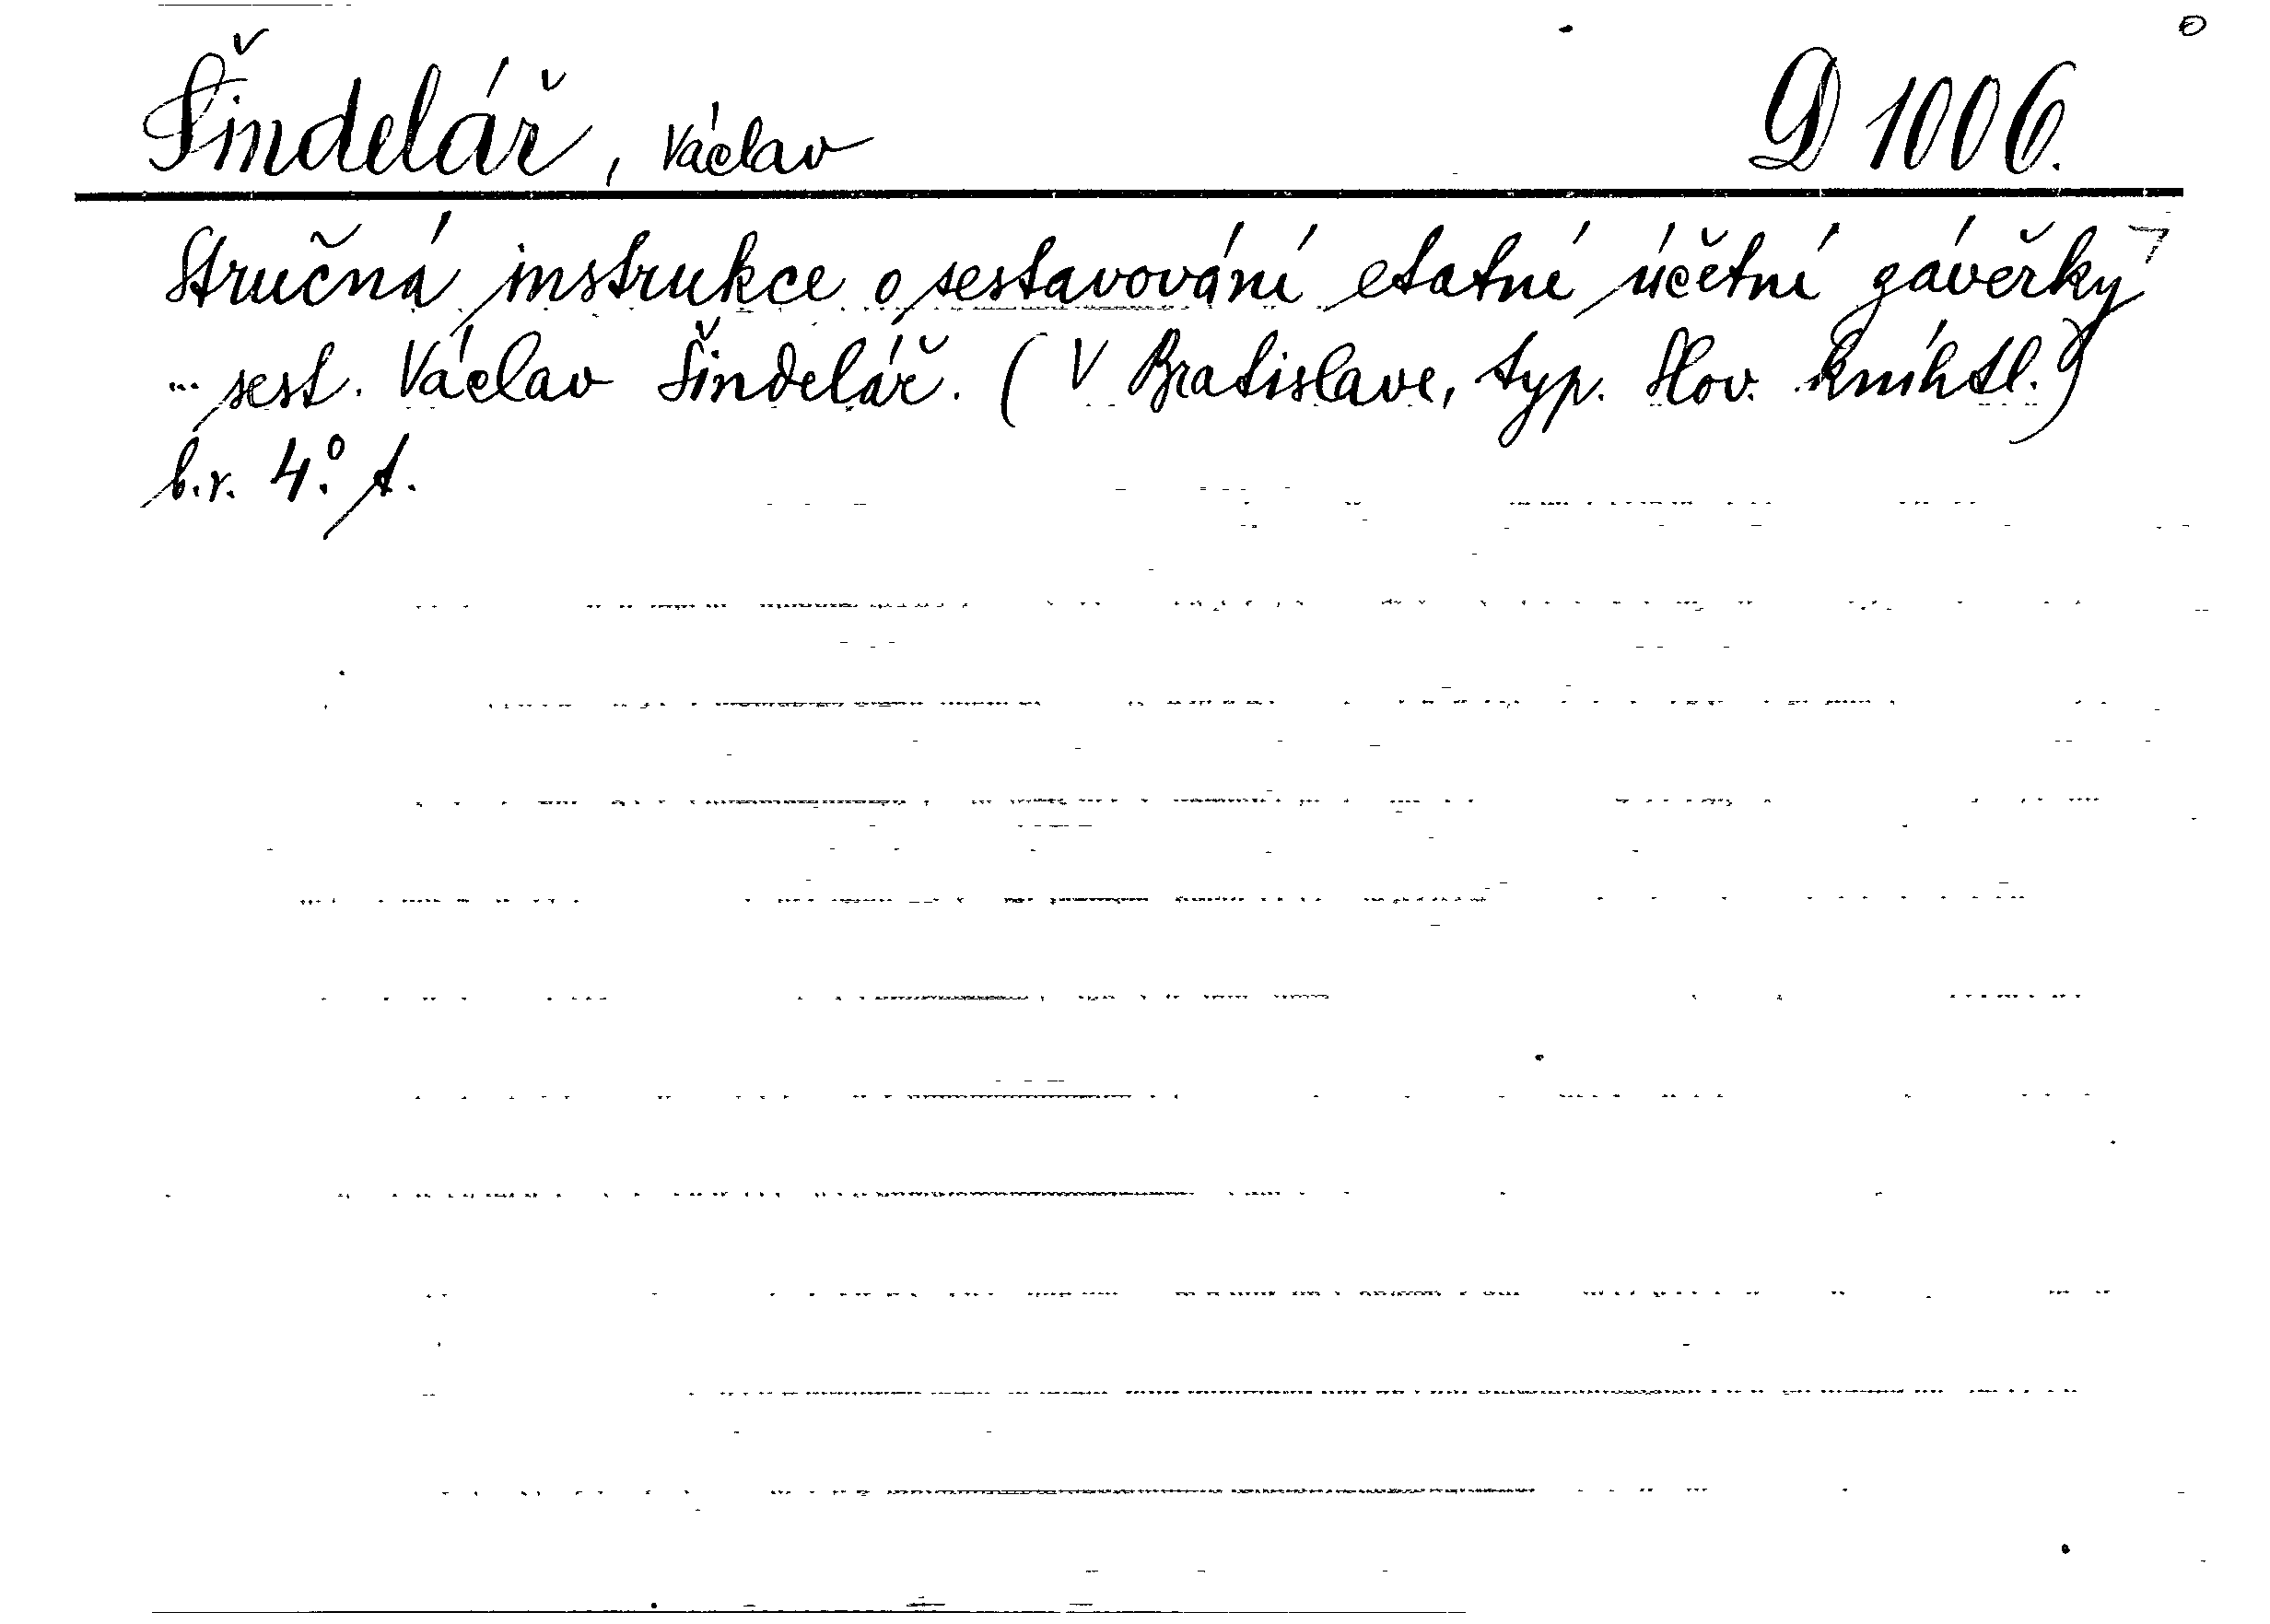 Šindelář, Václav D 1006.
Stručná instrukce o sestavování etatní účetní závěrky
... sest. Václav Šindelář. (V Bratislave, typ. Slov. kníhtl.)
b.r. 4.°